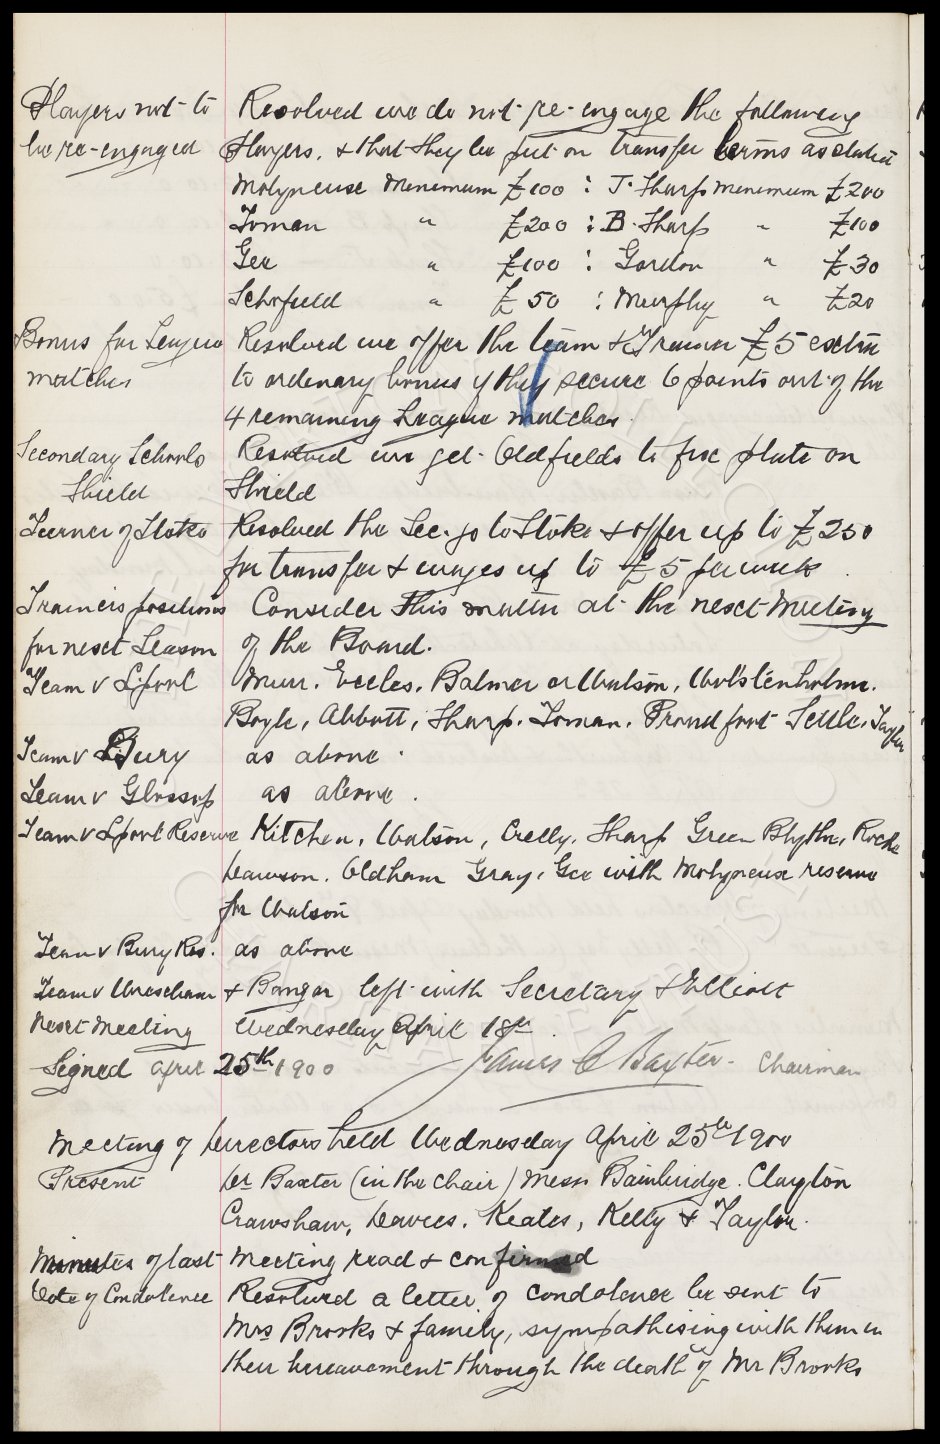 Players not to Resolved we do not re-engage the following
be re-engaged Players, & that they be put on transfer terms as stated
Molyneux Minimum £100 : J. Sharp minimum £200
Toman " £200 : B. Sharp " £100
Gee " £100 : Gordon " £30
Schofield " £50 : Murphy " £20
Bonus for League Resolved we offer the team & Trainer £5 extra
matches to ordinary bonus if they secure 6 points out of the
4 remaining League matches.
Secondary Schools Resolved we get Oldfields to fix plate on
Shield Shield
Turner of Stoke Resolved the Sec. go to Stoke & offer up to £250
for transfer & wages up to £5 per week.
Trainers positions Consider this matter at the next Meeting
for next Season of the Board.
Team v L'pool Muir. Eccles. Balmer or Watson, Wolstenholme.
Boyle, Abbott, Sharp. Toman. Proudfoot Settle. Taylor
Team v Bury as above.
Team v Glossop as above.
Team v L'pool Reserve Kitchen, Watson, Crelly. Sharp Green Blythe, Roche
Dawson. Oldham Gray. Gee with Molyneux reserve
for Watson
Team v Bury Res. as above
Team v Wrexham & Bangor left with Secretary & Elliott
Next Meeting Wednesday April 18th.
Signed April 25th 1900 James C Baxter - Chairman
Meeting of Directors held Wednesday April 25th 1900
Present Dr Baxter (in the chair) Messrs Bainbridge. Clayton
Crawshaw, Davies. Keates, Kelly & Taylor.
Minutes of last Meeting read & confirmed
Vote of Condolence Resolved a letter of condolence be sent to
Mrs Brooks & family, sympathising with them in
their bereavement through the death of Mr Brooks